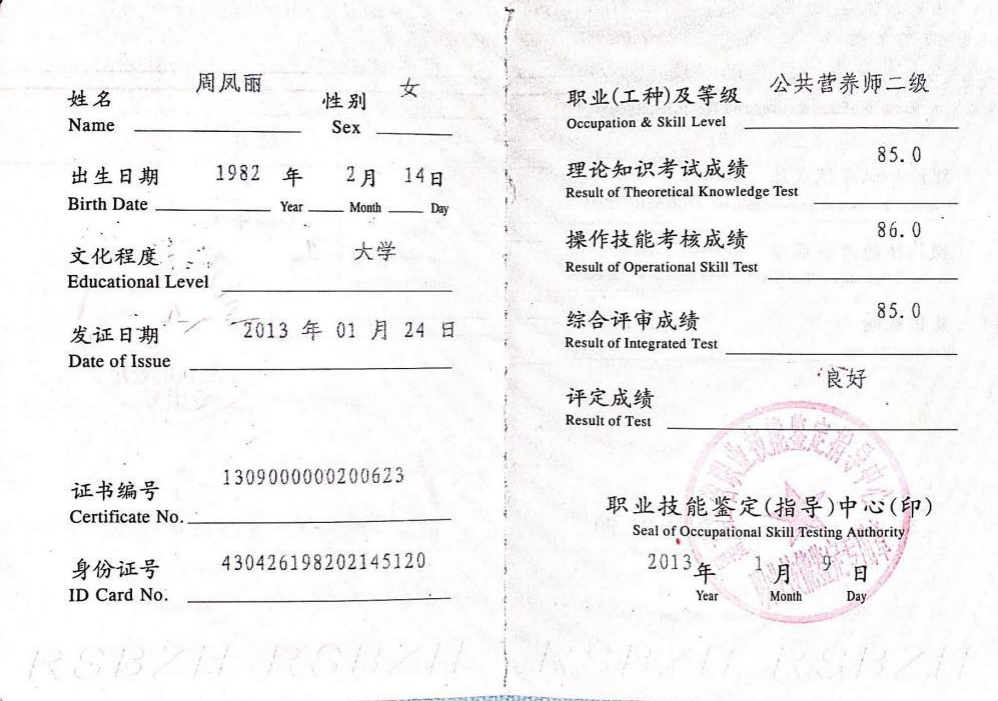 周凤丽 女
姓名 性别
Name Sex
出生日期 1982 年 2月 14日
Birth Date Year Month Day
文化程度 大学
Educational Level
发证日期 2013 年 01 月 24 日
Date of Issue
证书编号 1309000000200623
Certificate No.
身份证号 430426198202145120
ID Card No.
职业(工种)及等级 公共营养师二级
Occupation & Skill Level
理论知识考试成绩 85.0
Result of Theoretical Knowledge Test
操作技能考核成绩 86.0
Result of Operational Skill Test
综合评审成绩 85.0
Result of Integrated Test
评定成绩 良好
Result of Test
职业技能鉴定(指导)中心(印)
Seal of Occupational Skill Testing Authority
2013 年 1 月 9 日
Year Month Day
职业技能鉴定指导中心